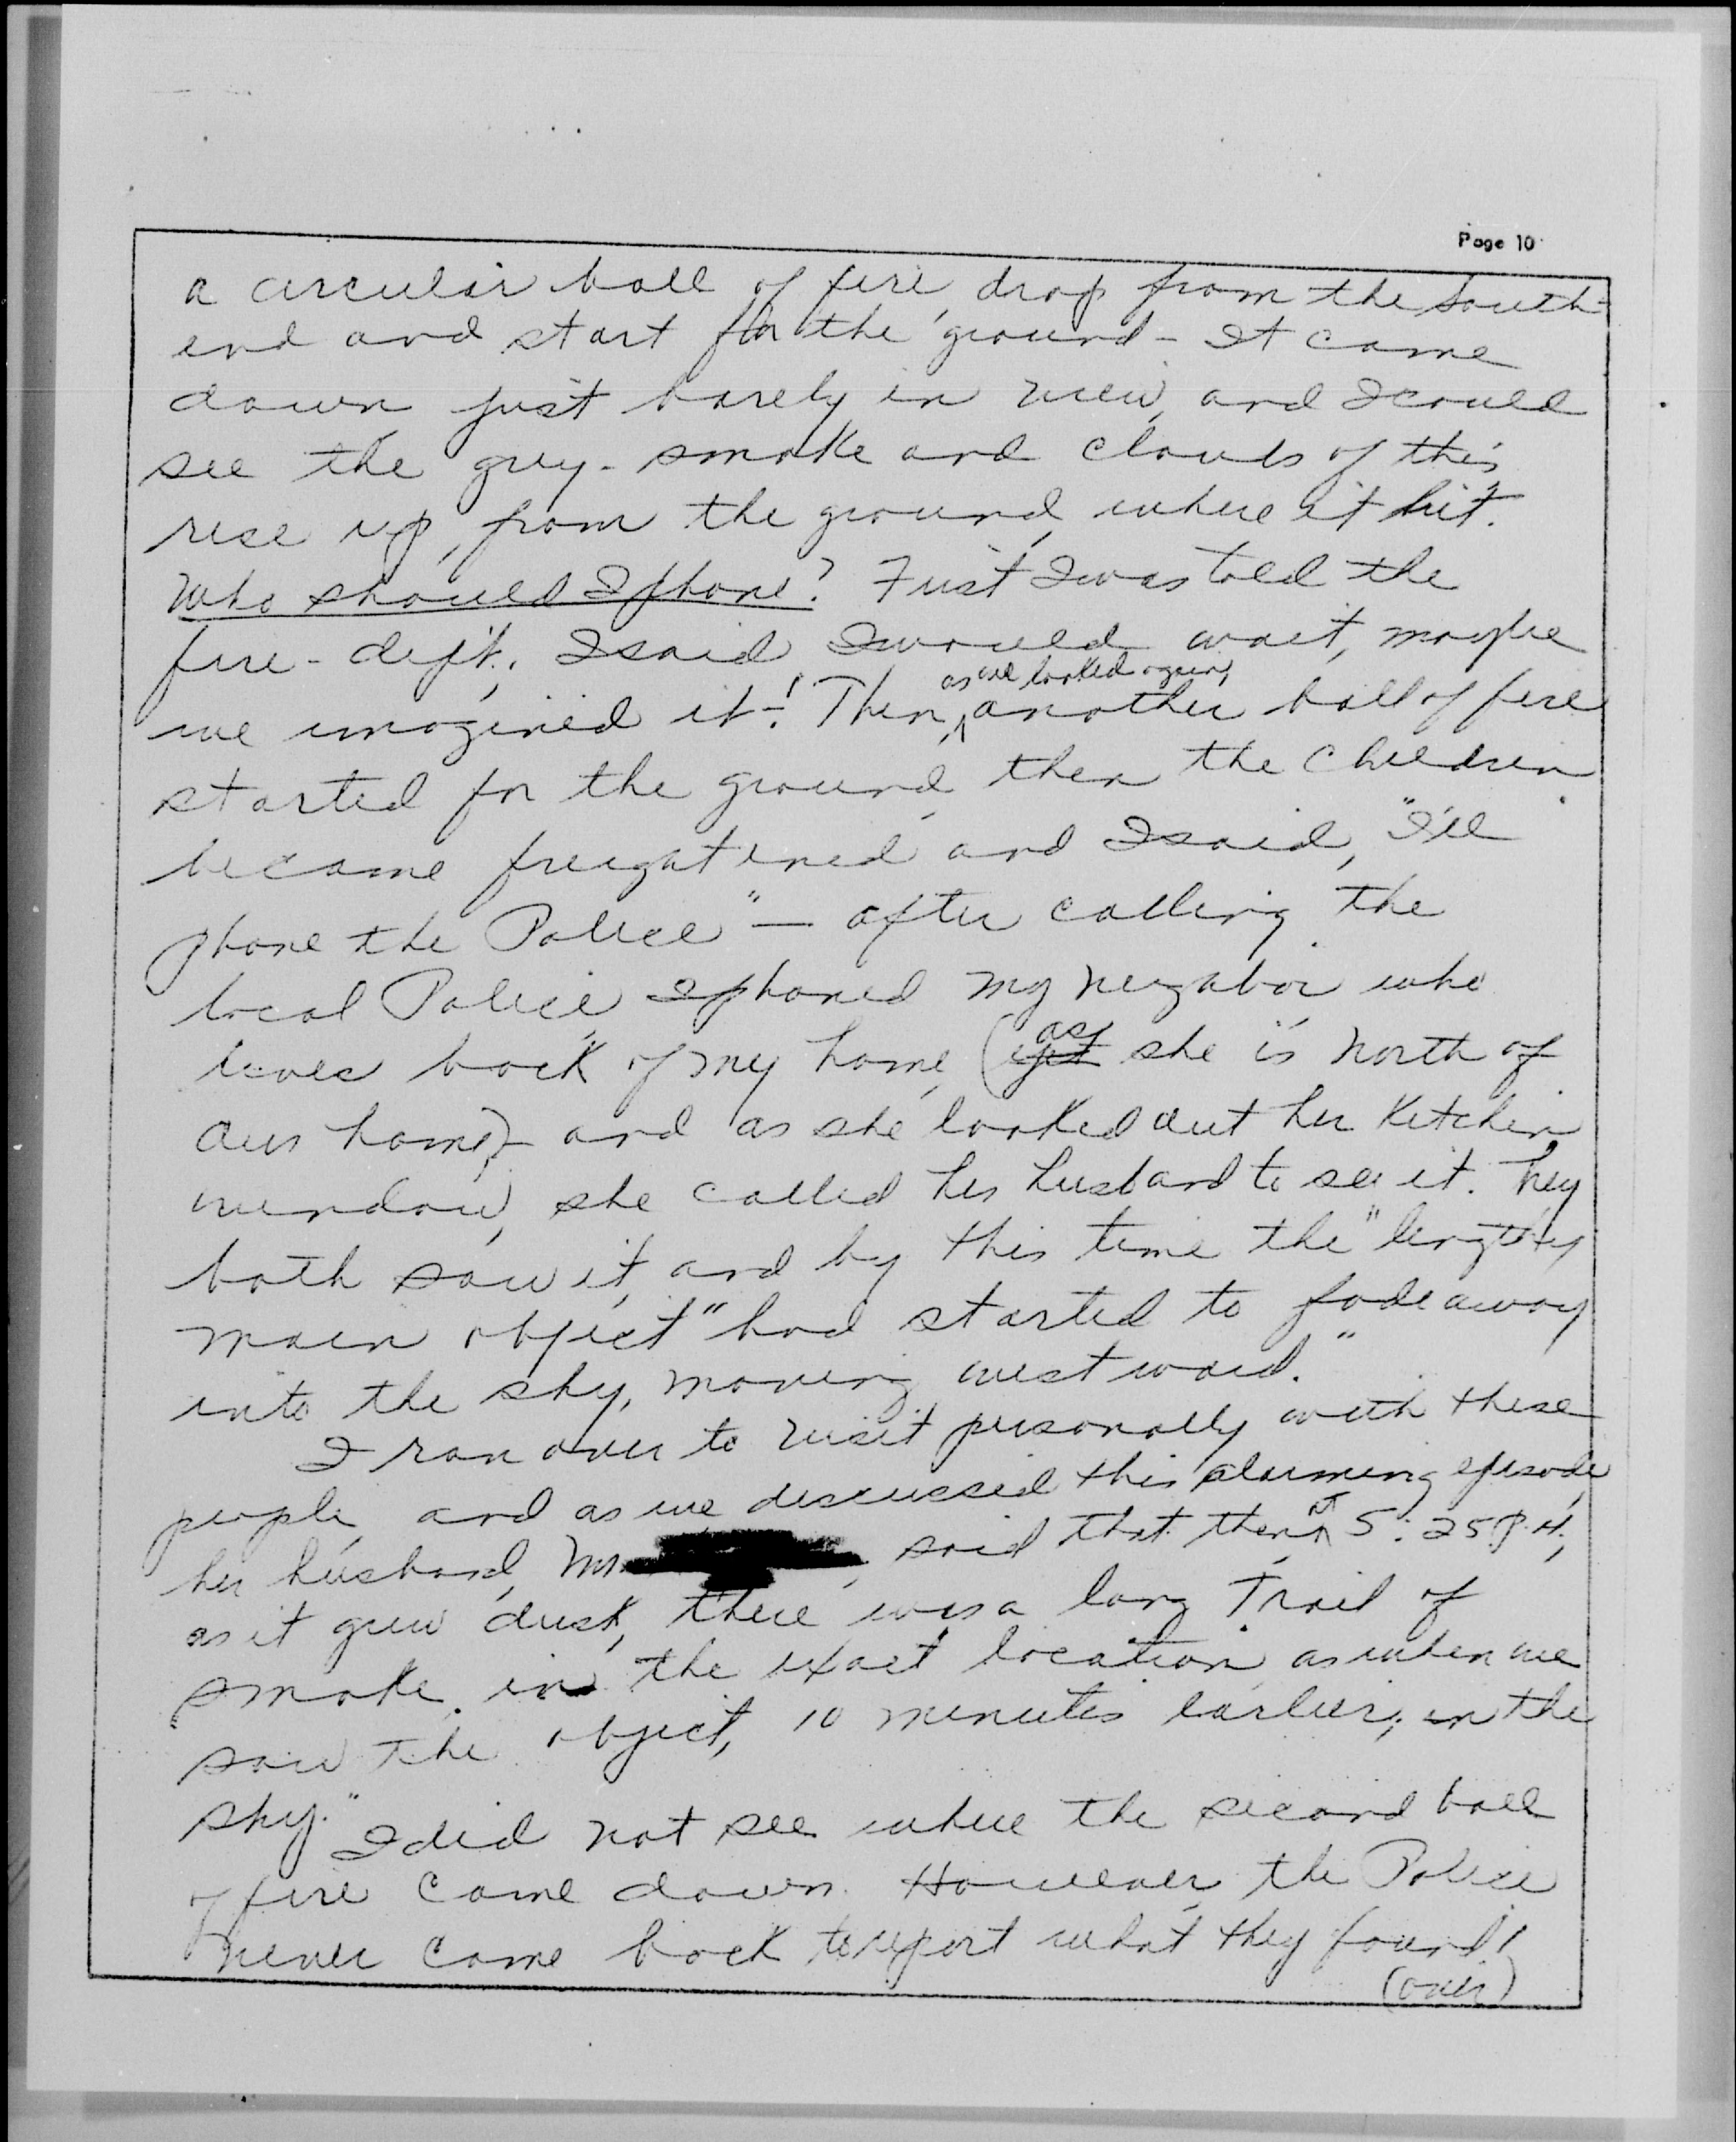 Page 10
a circular ball of fire, drop from the South-
end and start for the ground - It came
down just barely in view, and I could
see the grey - smoke and clouds of this
rise up, from the ground, where it hit.
Who should I phone? First I was told the
fire - dep't., I said I would wait, maybe
as we looked again,
we imagined it-! Then, ^ another ball of fire
started for the ground, then the children
became freightened and I said, "I'll
phone the Police" — after calling the
local Police, I phoned my neighbor who
lives back of my home, (yet as she is North of
our home)- and as she looked out her kitchen
window, she called her husband to see it. They
both saw it, and by this time the "lengthy
main object" had started to fade away
into the sky, moving westward."
I ran over to visit personally with these
people, and as we discussed this alarming episode,
her husband, Mr , said "that then, at 5:25 P.M.,
as it grew dusk, there was a long trail of
smoke, in the exact location, as when we
saw the object, 10 minutes earlier, in the
sky."
I did not see where the second ball
of fire came down. However, the Police
never came back to report what they found!
(over)